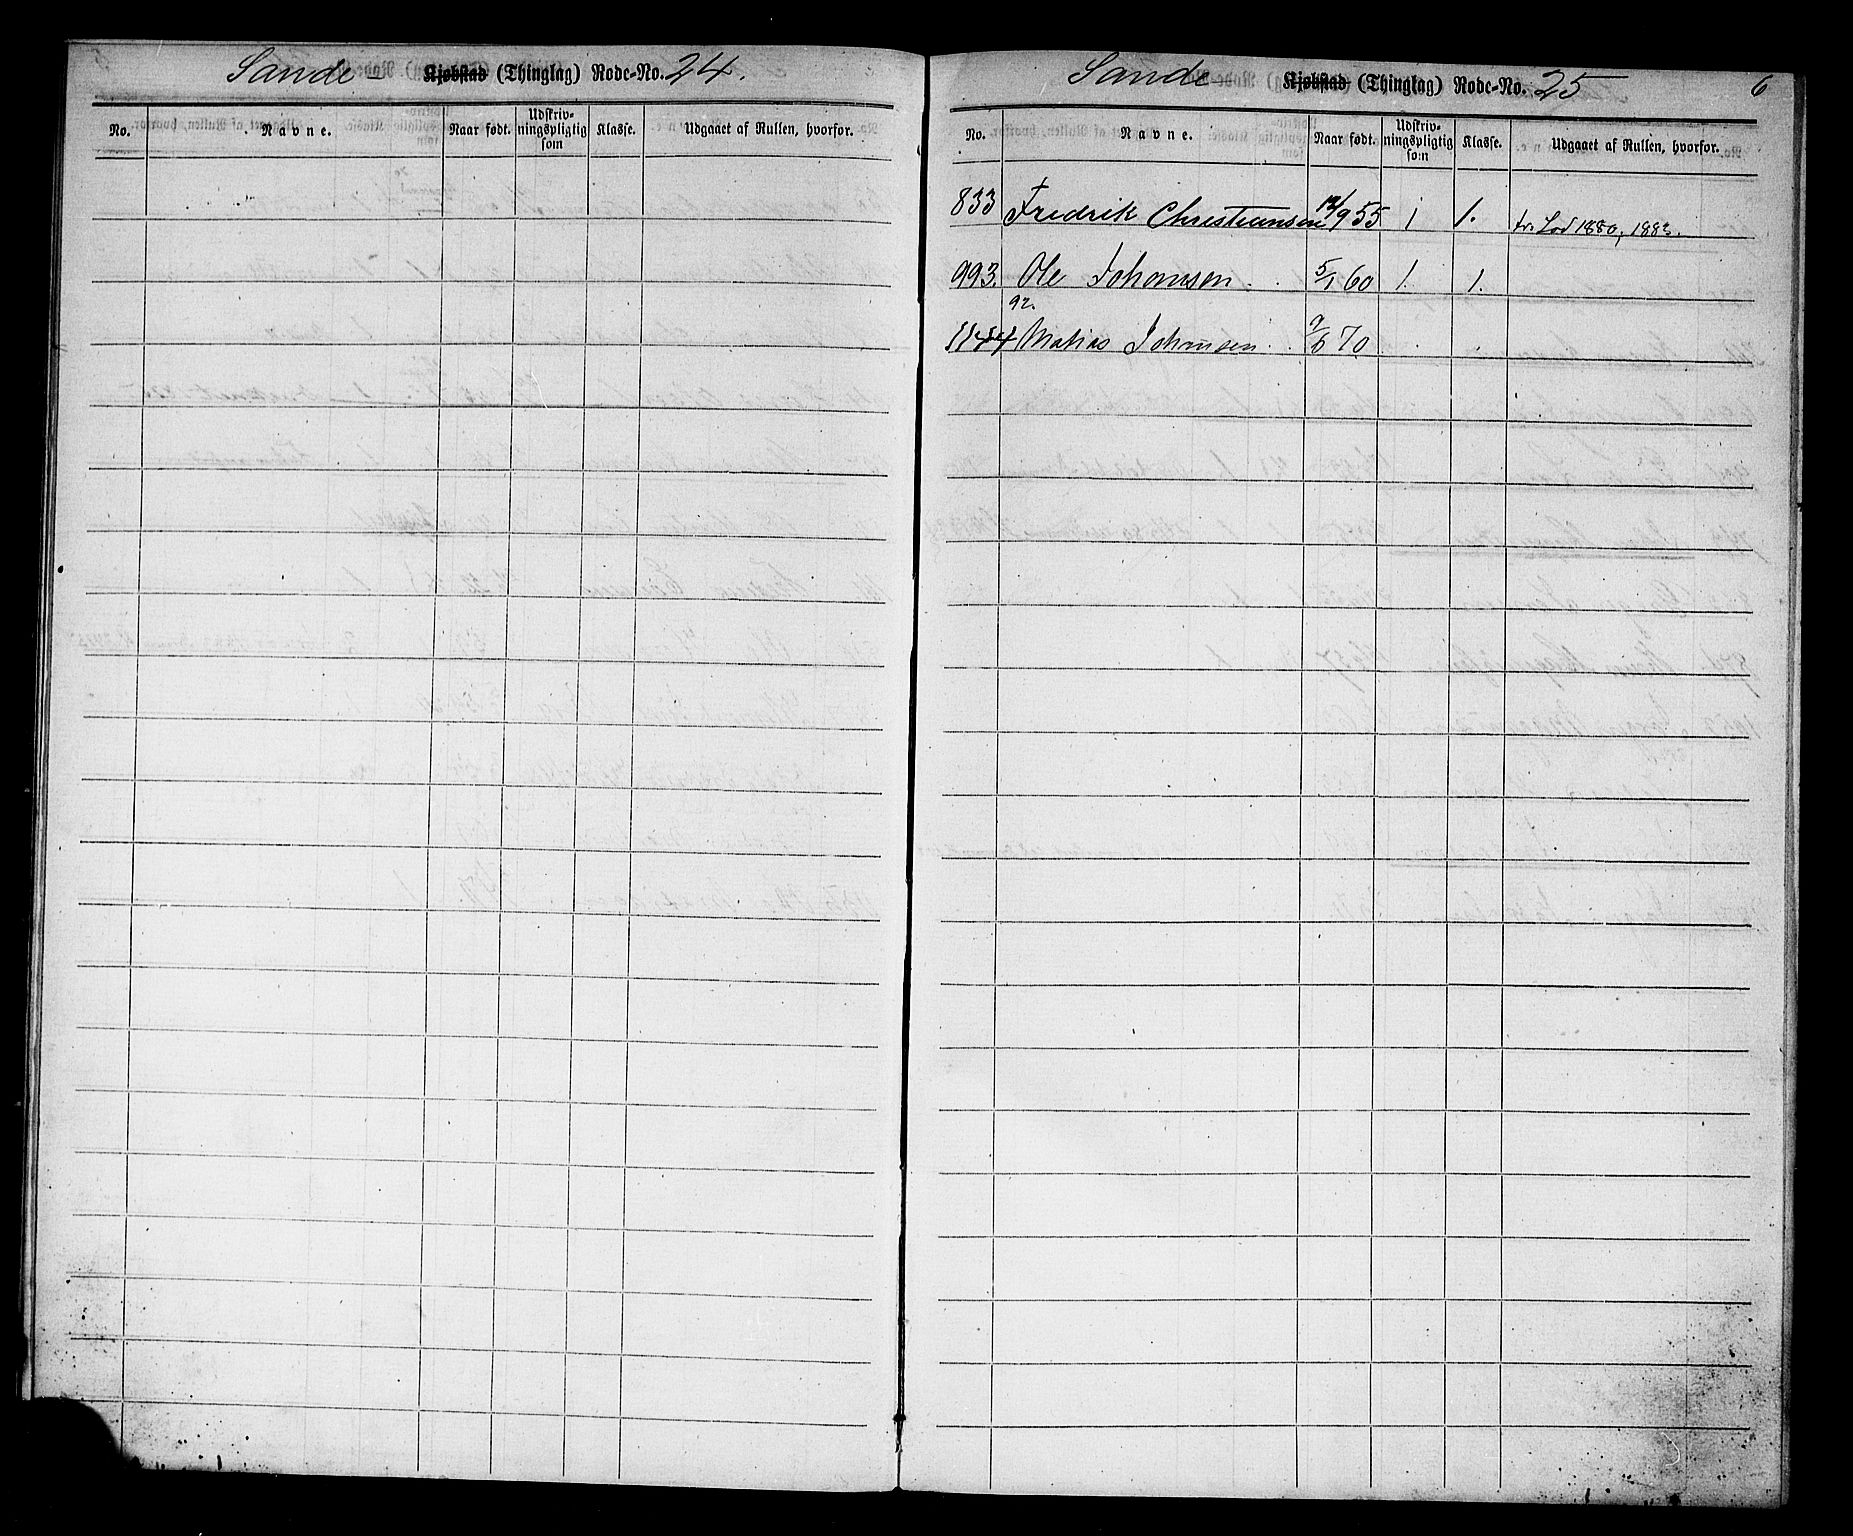 Sande - Kjøbstad (Thinglag) Rode-No. 24.
No. Navne. Naar født. Udskriv-ningspligtig som Klasse. Udgaaet af Rullen, hvorfor.
Sande Kjøbstad (Thinglag) Rode-No. 25 6
No. Navne. Naar født. Udskriv-ningspligtig som Klasse. Udgaaet af Rullen, hvorfor.
833 Fredrik Christiansen 12/9 55 1 1. fr. Lod 1880, 1883.
993. Ole Johansen. 5/1 60 1. 1.
92.
1144 Matias Johansen. 9/6 70